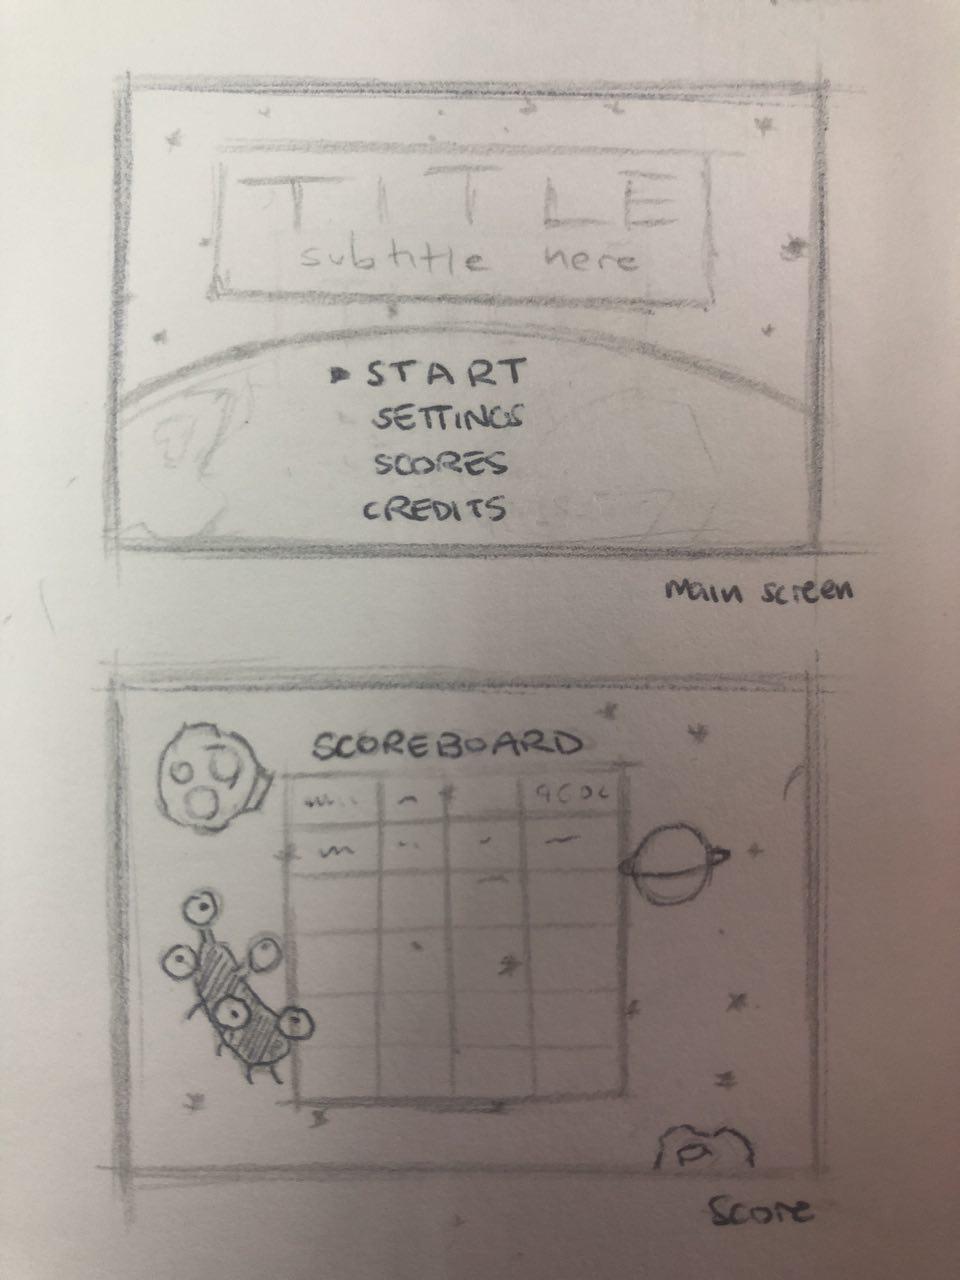 TITLE
subtitle here
START
SETTINGS
SCORES
CREDITS
Main screen
SCOREBOARD
Score